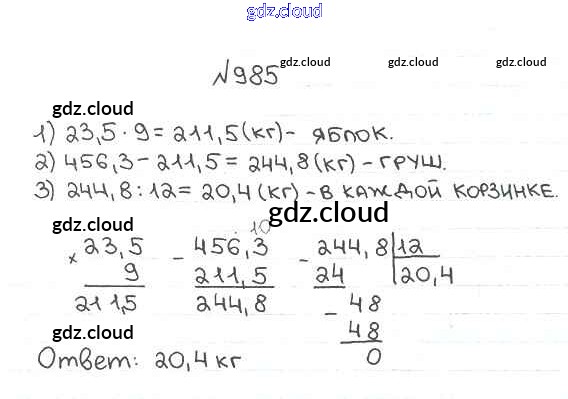 gdz.cloud
№985 gdz.cloud gdz.cloud
gdz.cloud
1) 23,5 · 9 = 211,5 (кг) - яблок.
2) 456,3 - 211,5 = 244,8 (кг) - груш.
3) 244,8 : 12 = 20,4 (кг) - в каждой корзинке.
gdz.cloud
· 10
× 23,5 - 456,3 - 244,8 | 12
9 211,5 24 20,4
211,5 244,8 - 48
gdz.cloud 48
0
Ответ: 20,4 кг gdz.cloud
gdz.cloud gdz.cloud